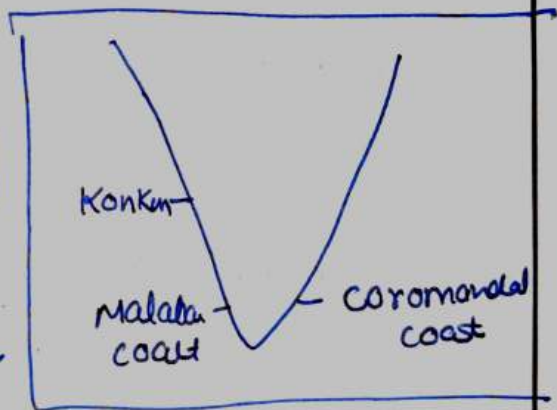 Konkan
Malabar
coast
coromandal
coast